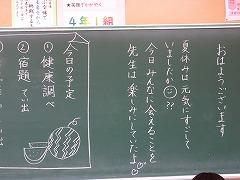 おはようございます
夏休みは元気にすごして
いましたか??
今日みんなに会えることを
先生は楽しみにしていたよ
今日の予定
①健康調べ
②宿題てい出
4年1組